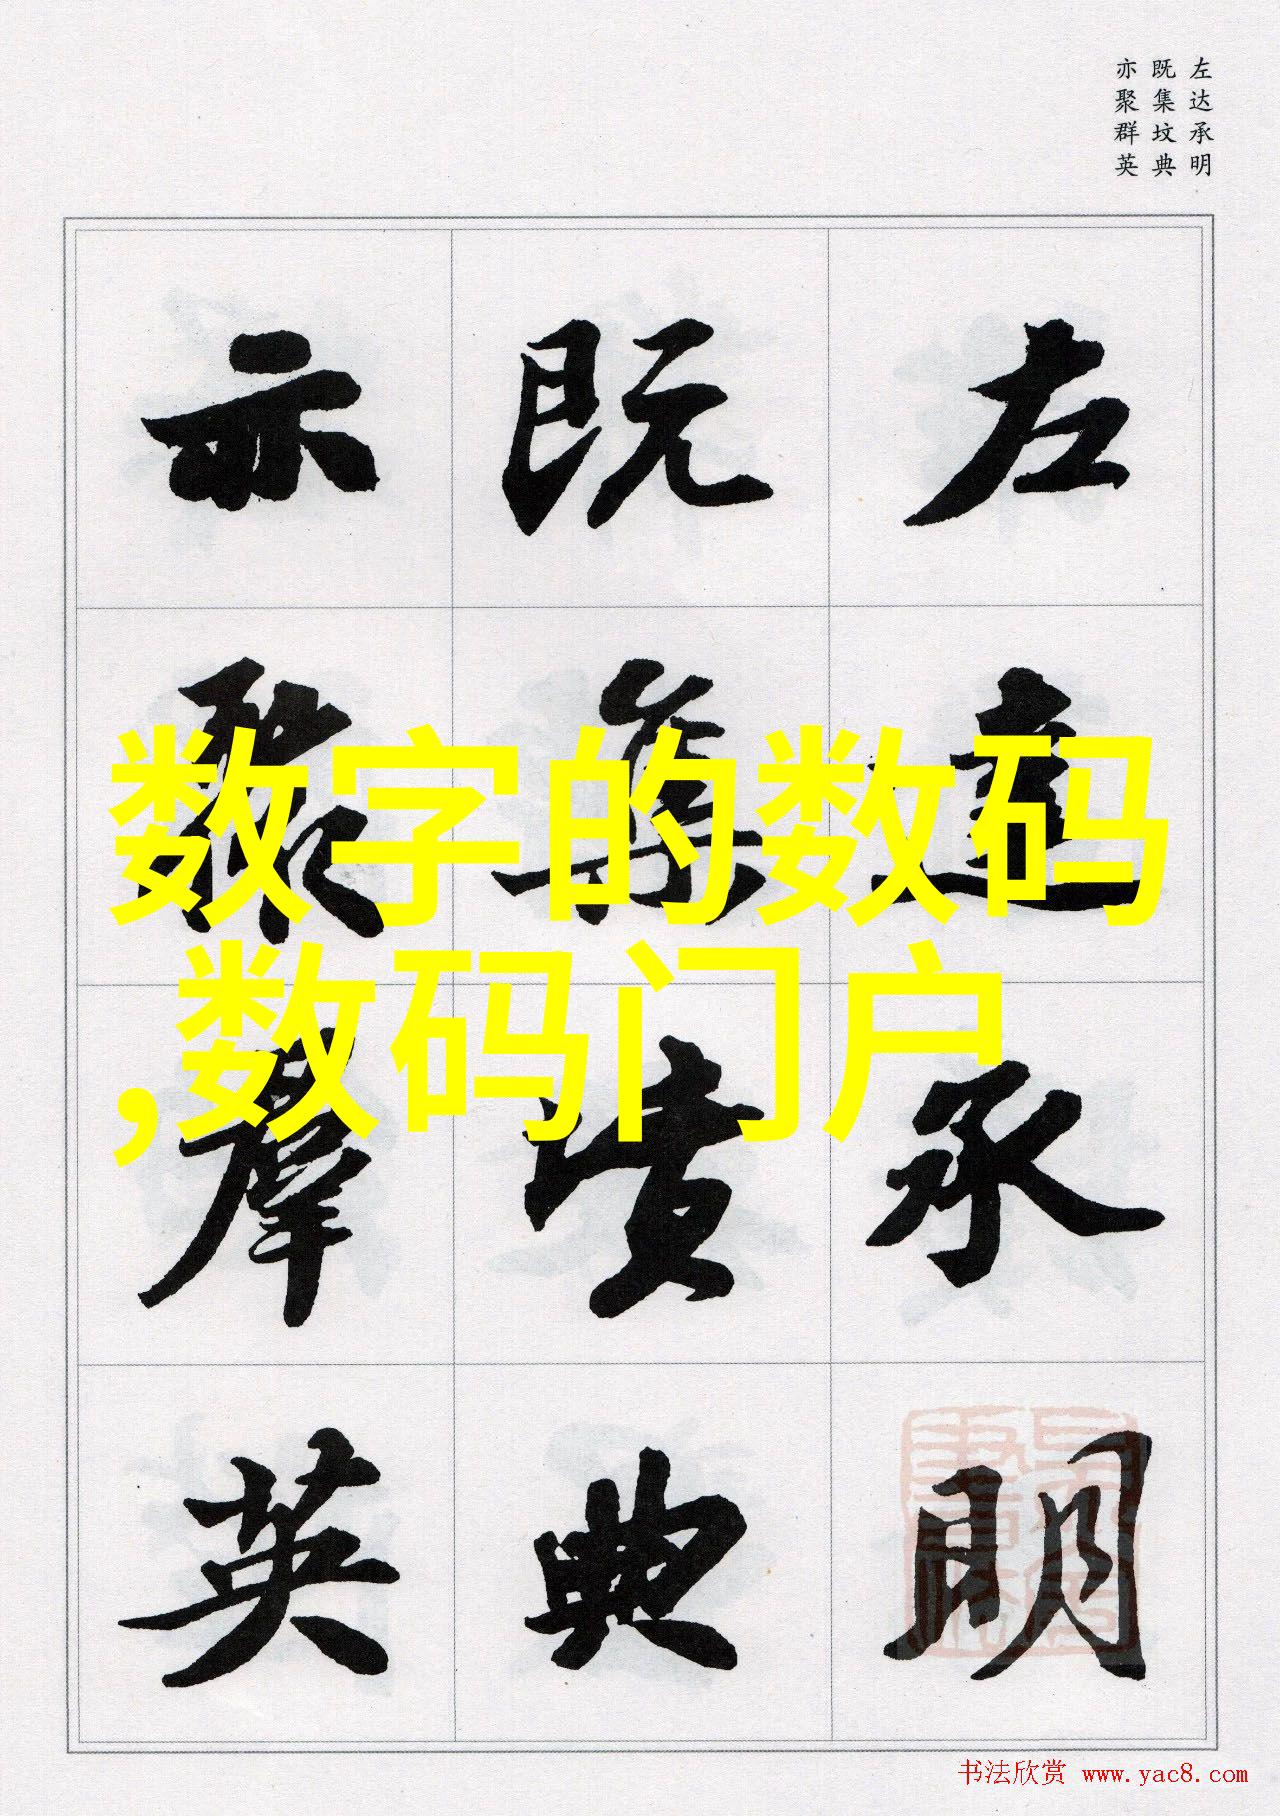 左达承明
既集坟典
亦聚群英
左達承明
既集墳典
亦聚羣英
数字的数码
,数码门户
书法欣赏 www.yac8.com